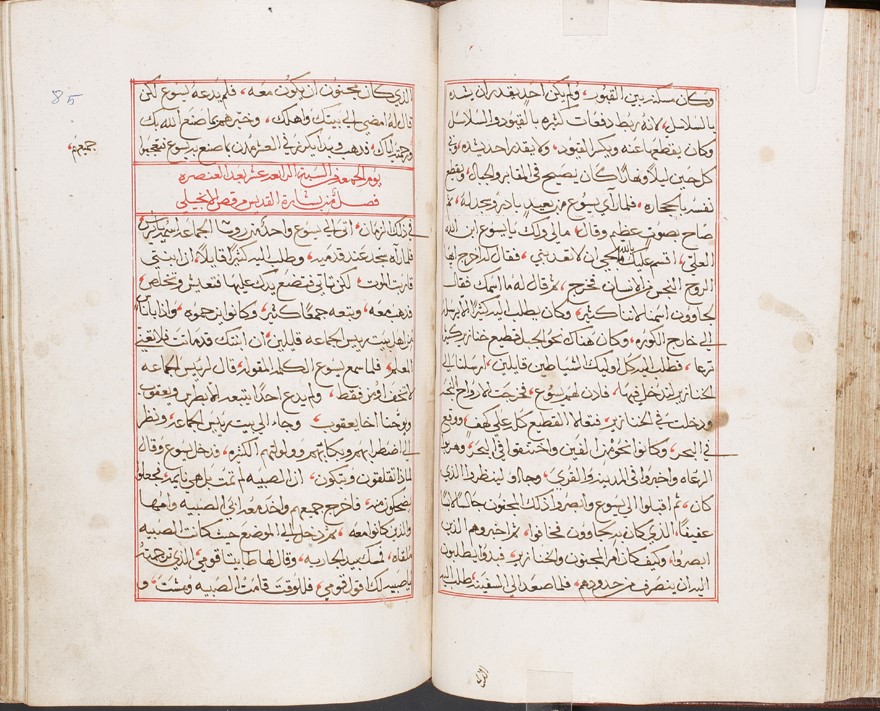 وكان مسكنه بين القبور، ولم يكن احد يقدر ان يشده
بالسلاسل، لانه ربط دفعات كثيره بالقيود والسلاسل
وكان يقطعها عنه ويكسر القيود، ولا يقدر احد يشده، وفي
كل حين ليلاً ونهاراً كان يصيح في المقابر والجبال، ويقطع
نفسه بالحجاره، فلما راي يسوع من بعيد بادر وسجد له،
صاح بصوت عظيم وقال، مالي ولك يا يسوع ابن الله
العلي، اقسم عليك بالله الحي ان لا تعذبني، فقال له اخرج ايها
الروح النجس من الانسان فخرج، ثم قال له ما اسمك فقال
لجاوون اسمنا لاننا كثير، وكان يطلب اليه كثيراً الا يرسله
الي خارج الكوره، وكان هناك نحو الجبل قطيع خنازير كثير
ترعا، فطلب اليه كل اوليك الشياطين قايلين، ارسلنا الي
الخنازير لندخل فيها، فاذن لهم يسوع، فخرجت الارواح النجسه
ودخلت في الخنازير، القطيع كله علي كهف، ووقع
في البحر، وكانوا نحو من الفين واختنقوا في البحر، وهربوا
الرعاه واخبروا في المدينه والقري، وجاوا لينظروا الذي
كان، ثم اقبلوا الي يسوع وابصروا ذلك المجنون جالساً لابساً
عفيفاً، الذي كان به لجاوون فخافوا، ثم اخبروهم الذين
ابصروا، وكيف كان امر المجنون والخنازير، فبدوا يطلبون
اليه ان ينصرف من حدودهم، فلما صعد الي السفينه طلب اليه
85
الذي كان مجنون ان يكون معه، فلم يدعه يسوع لكن
قال له امضي الي بيتك واهلك، وخبرهم بما صنع الله بك
ورحمته اياك، فذهب وبدا يكرز في العشر مدن بما صنع به يسوع فتعجبوا
جميعهم،
يوم الجمعه من السبة الرابعه عشر بعد العنصره
فصل من بشارة القديس مرقص الانجيلي
في ذلك الزمان، اتي الي يسوع واحد من روسا الجماعه اسمه يايرس
فلما راه سجد عند قدميه، وطلب اليه كثيراً قايلاً، ان ابنتي
قاربت الموت، لكن تاتي فتضع يدك عليها فتعيش وتخلص،
فذهب معه، وتبعه جمعاً كثير، وكانوا يزحموه، واذا باناس
من اهل بيت رييس الجماعه قايلين، ان ابنتك قد ماتت فلا تعني
المعلم، فلما سمع يسوع الكلمه المقوله، قال لرييس الجماعه
لا تخف امن فقط، ولم يدع احداً يتبعه الا بطرس ويعقوب
ويوحنا اخا يعقوب، وجاء الي بيت رييس الجماعه، ونظر
الي اضطرابهم وبكائهم وولولتهم الكثيره، فدخل يسوع وقال
لماذا تقلقون وتبكون، ان الصبيه لم تمت بل هي نايمه، فجعلوا
يضحكون منه، فاخرج جميعهم واخذ معه ابي الصبيه وامها
والذين كانوا معه، ثم دخل الي الموضع حيث كانت الصبيه
ملقاه، فمسك بيد الجاريه، وقال لها طابيثا قومي، الذي ترجمته
يا صبيه لك اقول قومي، فللوقت قامت الصبيه ومشت، و